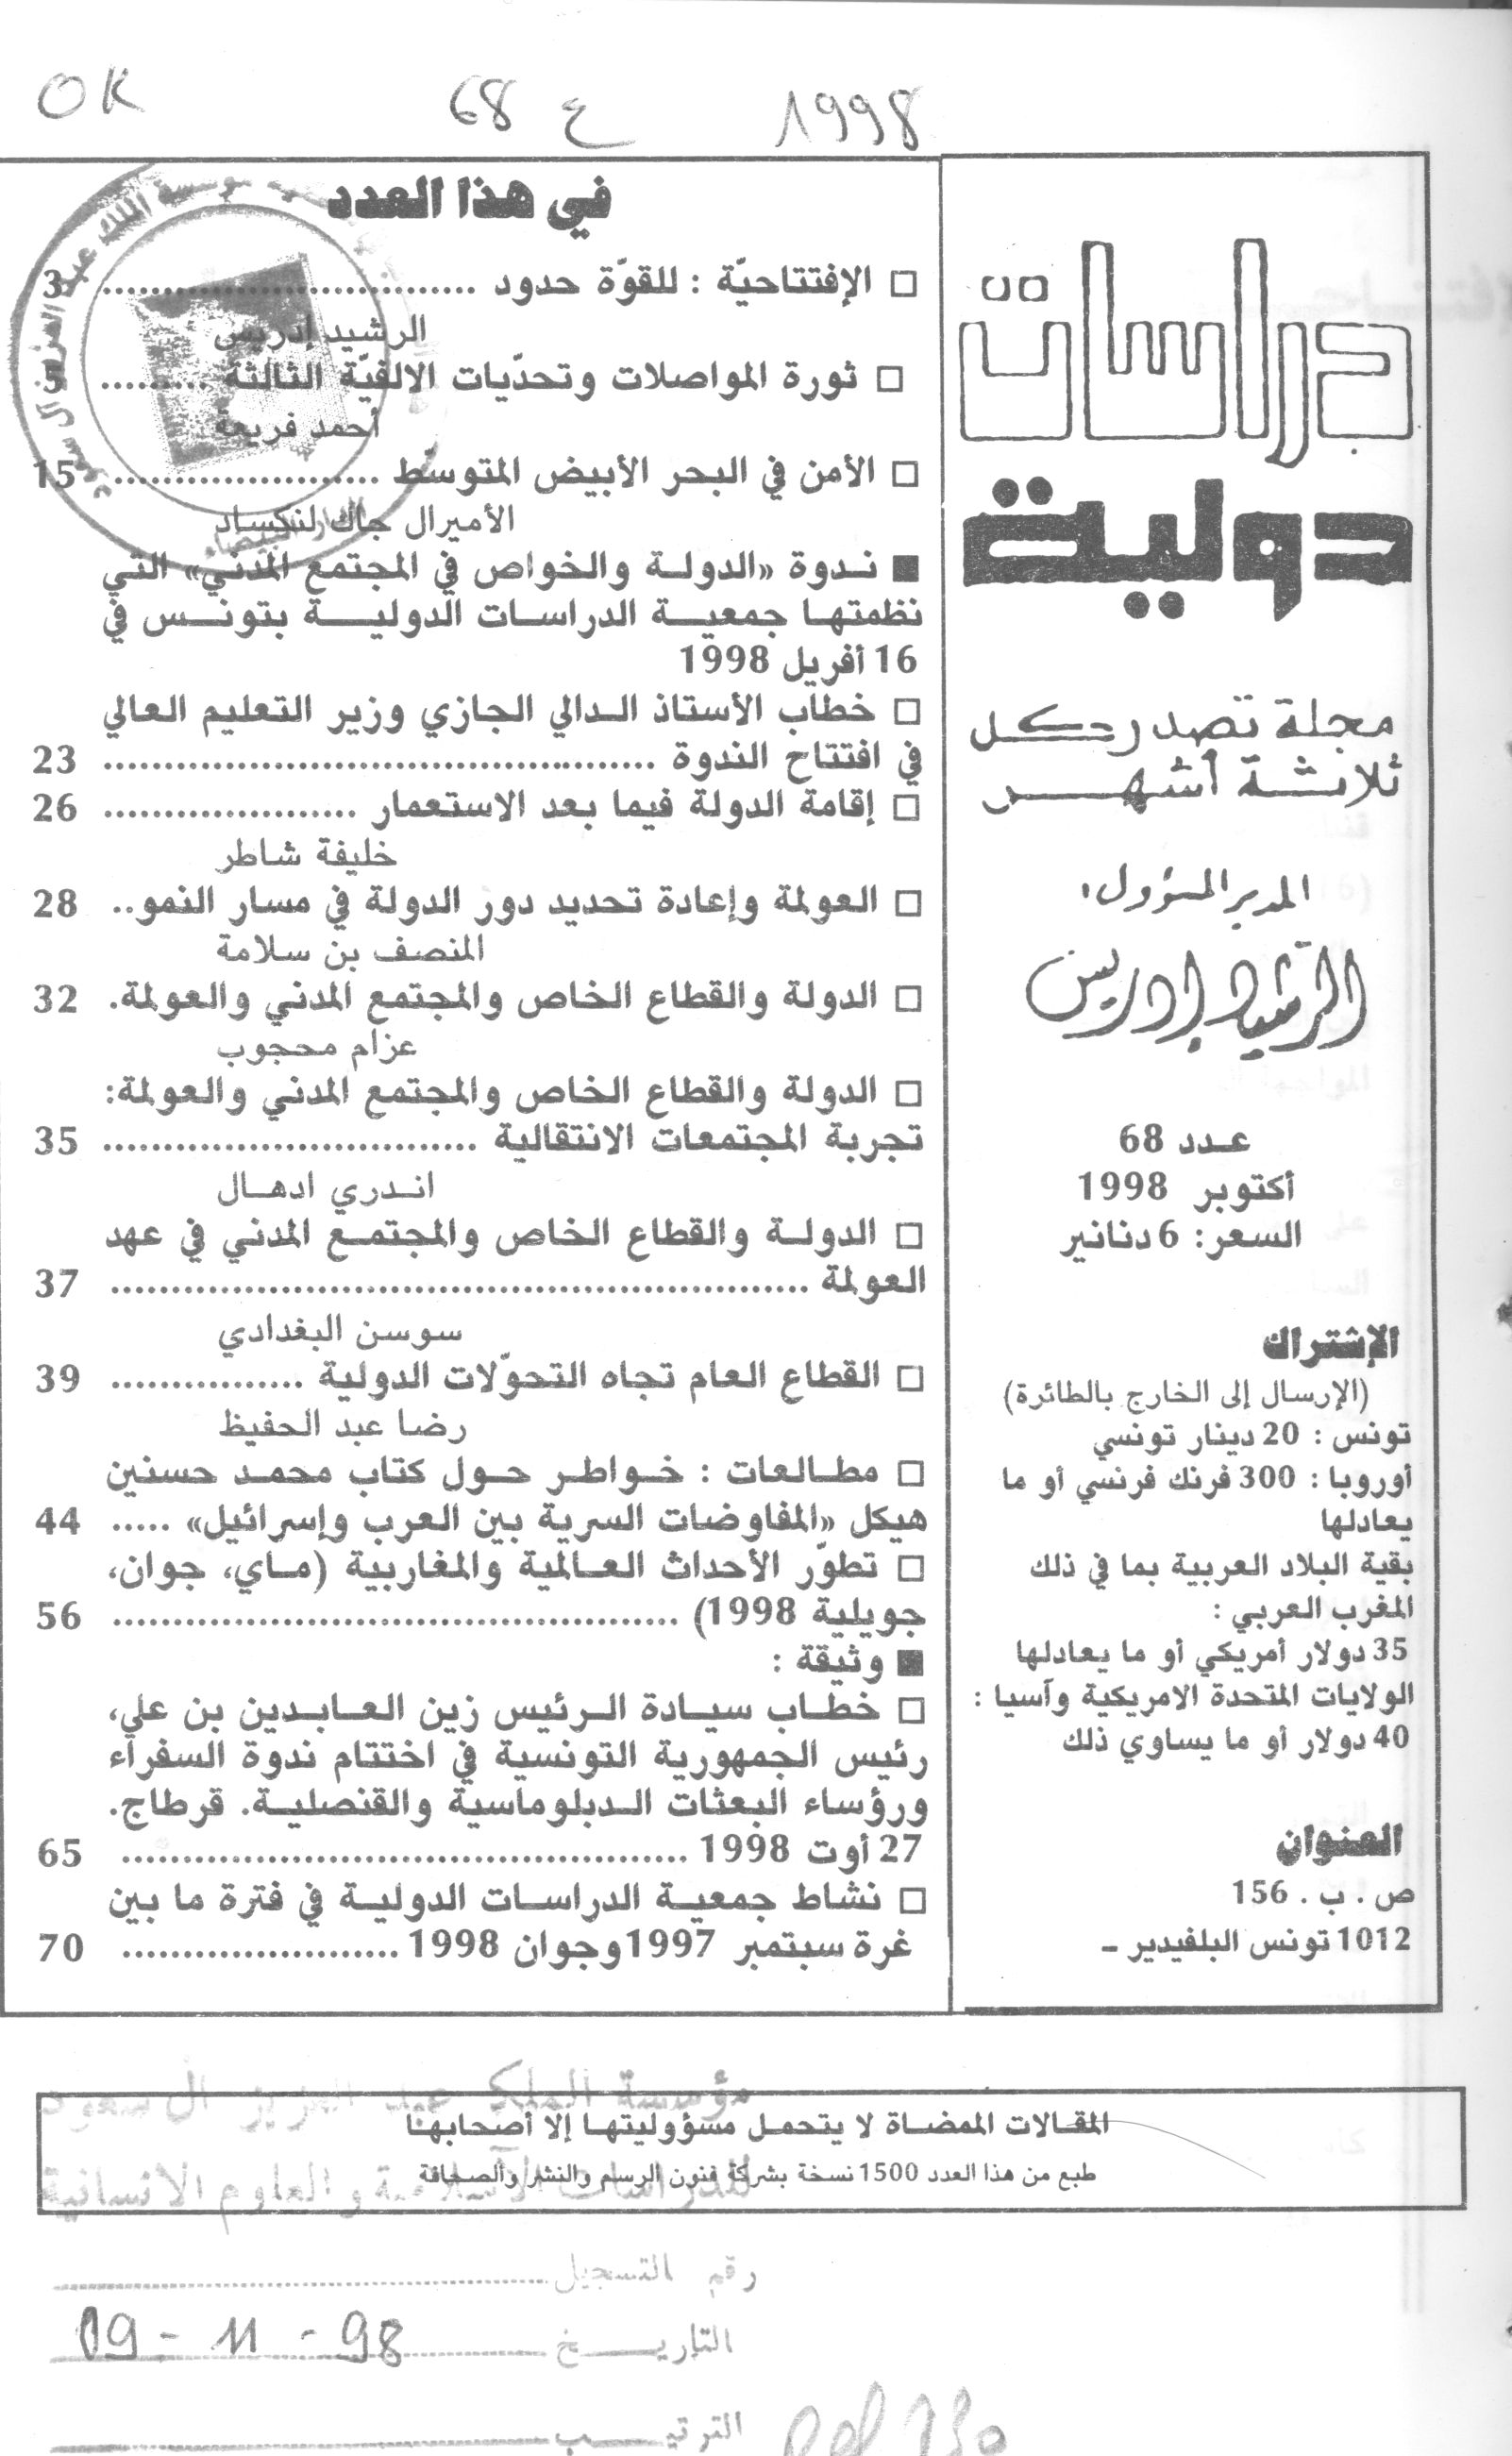 1998 ع 68 OK
دراسات
دولية
مجلة تصدر كل
ثلاثة أشهر
المدير المسؤول:
الرشيد إدريس
عدد 68
أكتوبر 1998
السعر: 6 دنانير
الإشتراك
(الإرسال إلى الخارج بالطائرة)
تونس : 20 دينار تونسي
أوروبا : 300 فرنك فرنسي أو ما
يعادلها
بقية البلاد العربية بما في ذلك
المغرب العربي :
35 دولار أمريكي أو ما يعادلها
الولايات المتحدة الامريكية وآسيا :
40 دولار أو ما يساوي ذلك
العنوان
ص . ب . 156
1012 تونس البلفيدير ـ
في هذا العدد
□ الإفتتاحيّة : للقوّة حدود ............................... 3
الرشيد إدريس
□ ثورة المواصلات وتحدّيات الالفيّة الثالثة ......... 5
أحمد فريعة
□ الأمن في البحر الأبيض المتوسّط ...................... 15
الأميرال جاك لنكساد
■ ندوة «الدولة والخواص في المجتمع المدني» التي
نظمتها جمعية الدراسات الدولية بتونس في
16 أفريل 1998
□ خطاب الأستاذ الدالي الجازي وزير التعليم العالي
في افتتاح الندوة .............................................. 23
□ إقامة الدولة فيما بعد الاستعمار ..................... 26
خليفة شاطر
□ العولمة وإعادة تحديد دور الدولة في مسار النمو.. 28
المنصف بن سلامة
□ الدولة والقطاع الخاص والمجتمع المدني والعولمة. 32
عزام محجوب
□ الدولة والقطاع الخاص والمجتمع المدني والعولمة:
تجربة المجتمعات الانتقالية ............................... 35
اندري ادهال
□ الدولة والقطاع الخاص والمجتمع المدني في عهد
العولمة .......................................................... 37
سوسن البغدادي
□ القطاع العام تجاه التحوّلات الدولية ................ 39
رضا عبد الحفيظ
□ مطالعات : خواطر حول كتاب محمد حسنين
هيكل «المفاوضات السرية بين العرب وإسرائيل» ..... 44
□ تطوّر الأحداث العالمية والمغاربية (ماي، جوان،
جويلية 1998) ............................................... 56
■ وثيقة :
□ خطاب سيادة الرئيس زين العابدين بن علي،
رئيس الجمهورية التونسية في اختتام ندوة السفراء
ورؤساء البعثات الدبلوماسية والقنصلية. قرطاج.
27 أوت 1998 ............................................... 65
□ نشاط جمعية الدراسات الدولية في فترة ما بين
غرة سبتمبر 1997 وجوان 1998 ....................... 70
المقالات الممضاة لا يتحمل مسؤوليتها إلا أصحابها
طبع من هذا العدد 1500 نسخة بشركة فنون الرسم والنشر والصحافة
مؤسسة الملك عبد العزيز آل سعود
للدراسات الاسلامية والعلوم الانسانية
رقم التسجيل
التاريخ 09 - 11 - 98
الترتيب